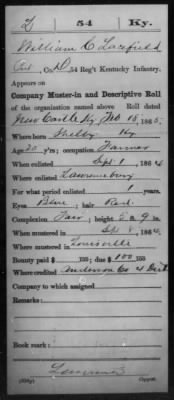 L | 54 | Ky.
William C Lacefield
Pvt, Co. D, 54 Reg't Kentucky Infantry.
Appears on
Company Muster-in and Descriptive Roll
of the organization named above. Roll dated
New Castle Ky Feb 15, 1865.
Where born Shelby Ky
Age 20 y'rs; occupation Farmer
When enlisted Sept 1, 1864
Where enlisted Lawrenceburg
For what period enlisted 1 years.
Eyes Blue; hair Red
Complexion Fair; height 5 ft. 9 in.
When mustered in Sep 8, 1864.
Where mustered in Louisville
Bounty paid $ 100; due $ 100 100
Where credited Anderson Co 4 Dist
Company to which assigned
Remarks:
Book mark:
(339g) Copyist.